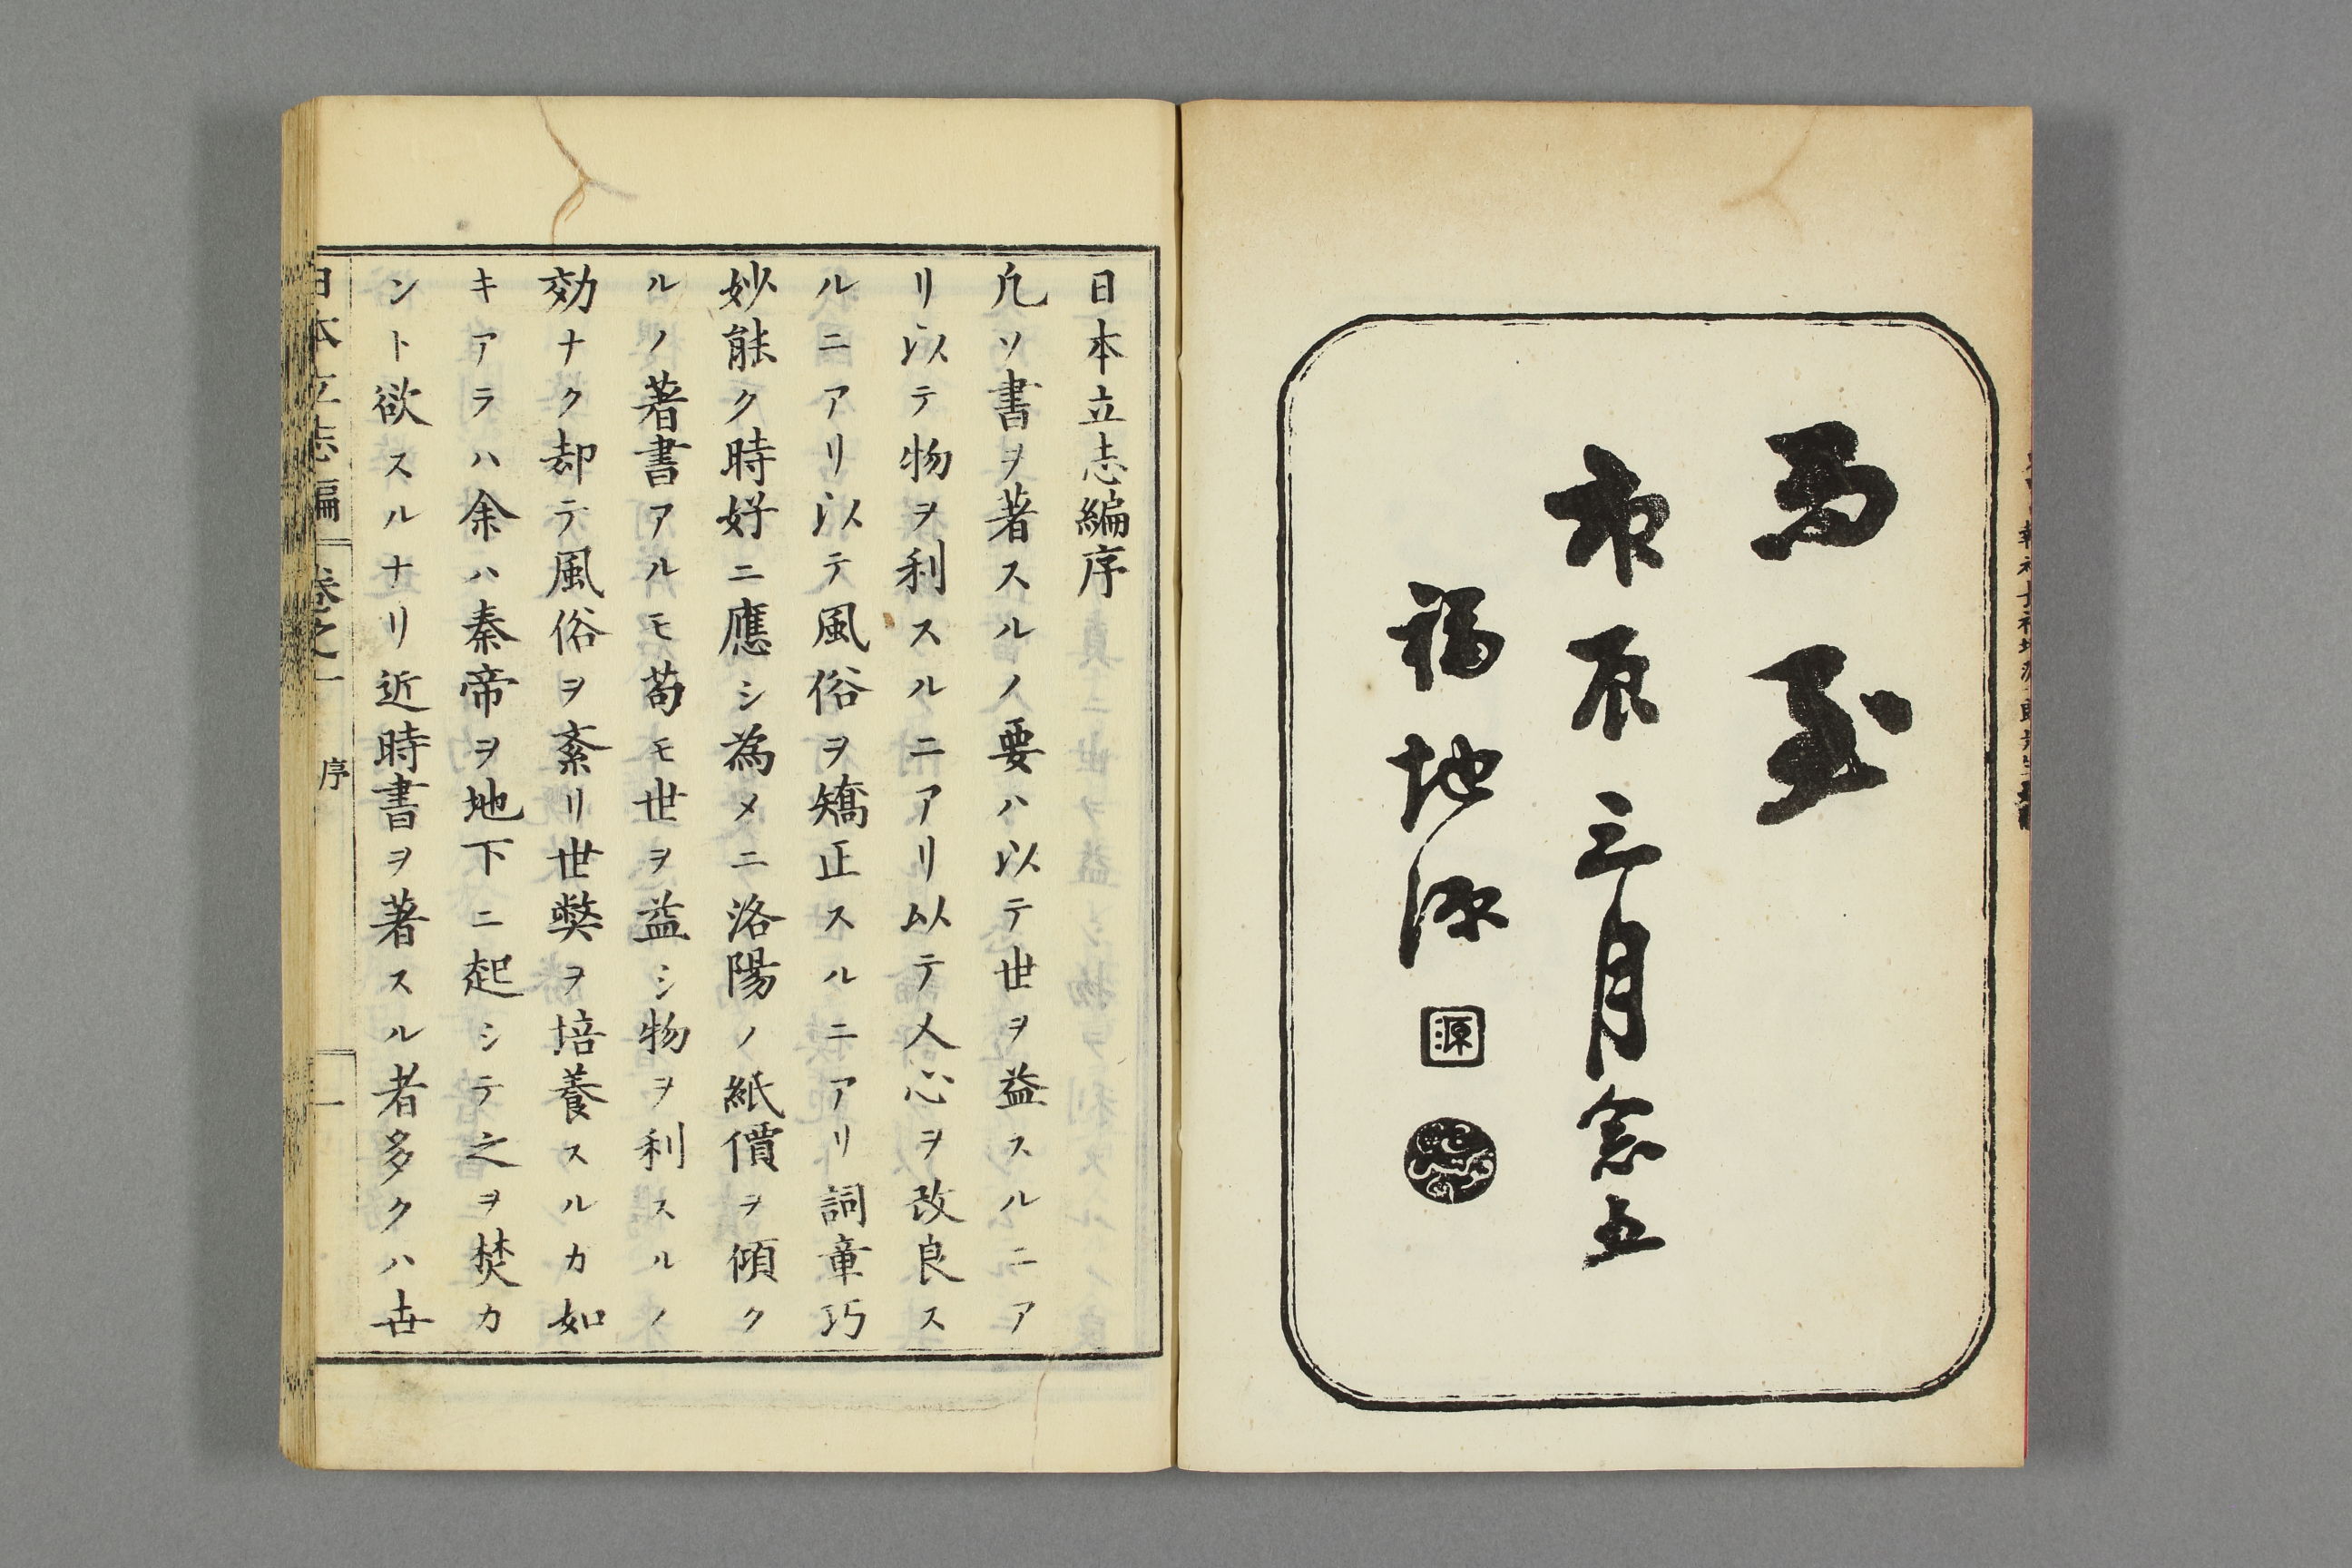 報社長福地源一郎先生
庚辰三月念五
福地源
源
日本立志編序
凢ソ書ヲ著スルノ要ハ以テ世ヲ益スルニア
リ以テ物ヲ利スルニアリ以テ人心ヲ改良ス
ルニアリ以テ風俗ヲ矯正スルニアリ詞章巧
妙能ク時好ニ應シ為メニ洛陽ノ紙價ヲ傾ク
ルノ著書アルモ苟モ世ヲ益シ物ヲ利スルノ
効ナク却テ風俗ヲ紊リ世獘ヲ培養スルカ如
キアラハ余ハ秦帝ヲ地下ニ起シテ之ヲ焚カ
ント欲スルナリ近時書ヲ著スル者多クハ世
日本立志編 卷之一 序 一